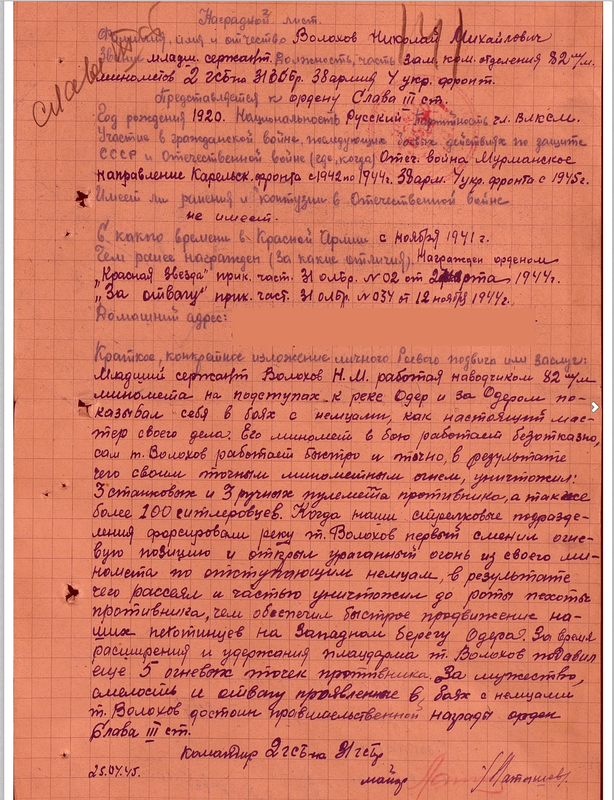 Наградной лист.
Фамилия, имя и отчество Волохов Николай Михайлович
Звание младш. сержант. Должность, часть зам. ком. отделения 82 м/м.
минометов 2 гсб
Слава III ст
Представляется к ордену Слава III ст.
Год рождения 1920. Национальность Русский Партийность чл. ВЛКСМ.
Участие в гражданской войне, последующих боевых действиях по защите
СССР и Отечественной войне (где, когда) Отеч. война Мурманское
направление Карельск. фронта с 1942 по 1944г. 38 арм. 4 укр. фронта с 1945г.
Имеет ли ранения и контузии в Отечественной войне
не имеет.
С какого времени в Красной Армии с ноября 1941 г.
Чем ранее награжден (за какие отличия). Награжден орденом
„Красная Звезда" прик. част. 31 олбр. №02 от марта 1944г.
„За отвагу" прик. част. 31 олбр №034 от 12 ноября 1944г.
Домашний адрес:
Краткое, конкретное изложение личного боевого подвига или заслуг:
Младший сержант Волохов Н.М. работая наводчиком 82 м/м
миномета на подступах к реке Одер и за Одером по-
казывал себя в боях с немцами, как настоящий мас-
тер своего дела. Его миномет в бою работает безотказно,
сам т. Волохов работает быстро и точно, в результате
чего своим точным минометным огнем, уничтожил:
3 станковых и 3 ручных пулемета противника, а также
более 100 гитлеровцев. Когда наши стрелковые подразде-
ления форсировали реку т. Волохов первый сменил огне-
вую позицию и открыл ураганный огонь из своего ми-
номета по отступающим немцам, в результате
чего рассеял и частью уничтожил до роты пехоты
противника, чем обеспечил быстрое продвижение на-
ших пехотинцев на Западном берегу Одера. За время
расширения и удержания плацдарма т. Волохов подавил
еще 5 огневых точек противника. За мужество,
смелость и отвагу проявленные в боях с немцами
т. Волохов достоин правительственной награды орден
Слава III ст.
Командир 2 гсб
25.04.45. майор